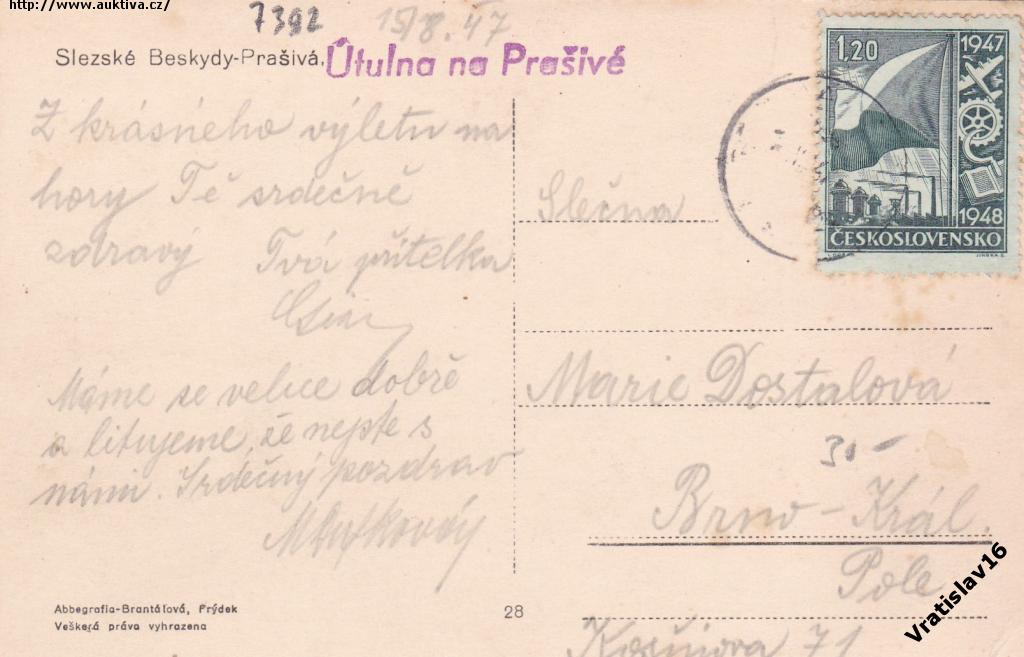 http://www.auktiva.cz/
7392
15/8.47
Slezské Beskydy-Prašivá,
Útulna na Prašivé
Z krásného výletu na
hory Tě srdečně
zdravý Tvá přítelka
Máme se velice dobře
a litujeme, že nejste s
námi. Srdečný pozdrav
Abbegrafia-Brantálová, Frýdek
Veškerá práva vyhrazena
28
1,20
1947
1948
ČESKOSLOVENSKO
Slečna
Marie Dostalová
30-
Brno-Král.
Pole
71
Vratislav16